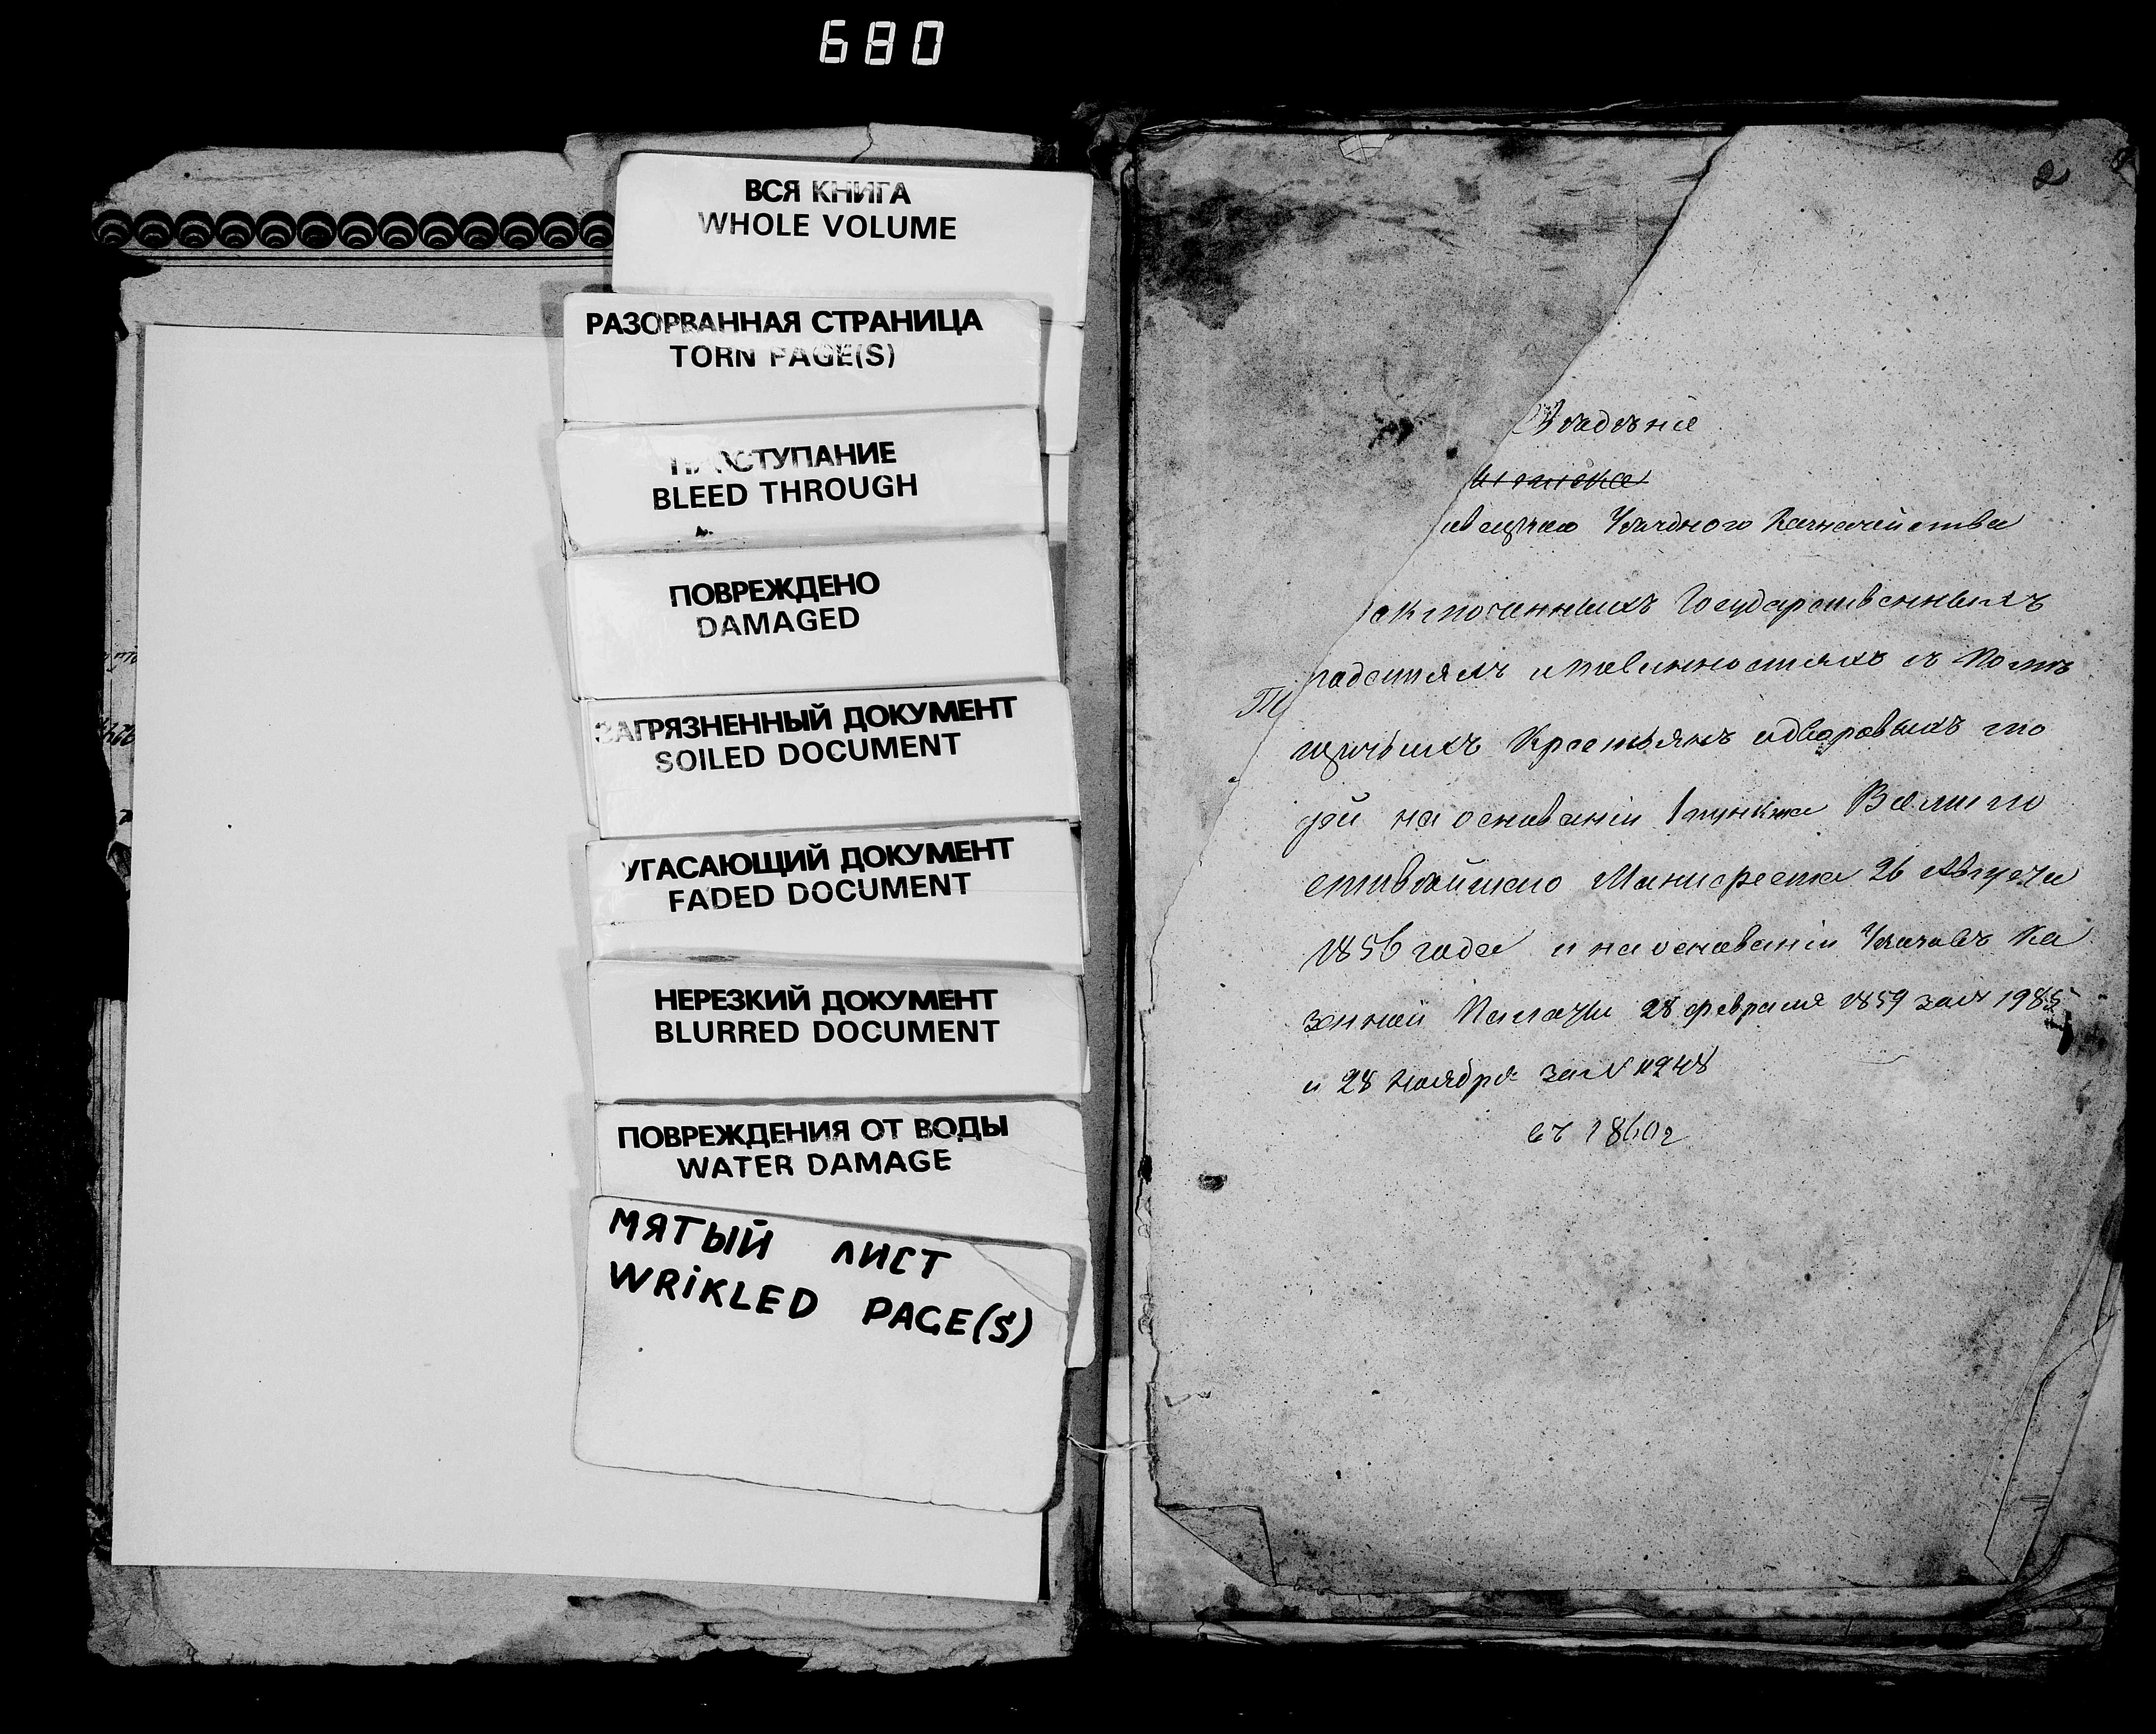 680
ВСЯ КНИГА
WHOLE VOLUME
РАЗОРВАННАЯ СТРАНИЦА
TORN PAGE(S)
ПРОСТУПАНИЕ
BLEED THROUGH
ПОВРЕЖДЕНО
DAMAGED
ЗАГРЯЗНЕННЫЙ ДОКУМЕНТ
SOILED DOCUMENT
УГАСАЮЩИЙ ДОКУМЕНТ
FADED DOCUMENT
НЕРЕЗКИЙ ДОКУМЕНТ
BLURRED DOCUMENT
ПОВРЕЖДЕНИЯ ОТ ВОДЫ
WATER DAMAGE
МЯТЫЙ ЛИСТ
WRIKLED PAGE(S)
2
Уѣзднаго Казначейства
Государственныхъ
податяхъ и повинностяхъ съ помѣ
щичьихъ Крестьянъ и дворовыхъ лю
дей на основаніи 1 пункта Всемило
стивѣйшаго Манифеста 26 Августа
1856 года и на основаніи Указовъ Ка
зенной Палаты 28 февраля 1859 за № 1985
и 28 Ноября за №
въ 1860 г